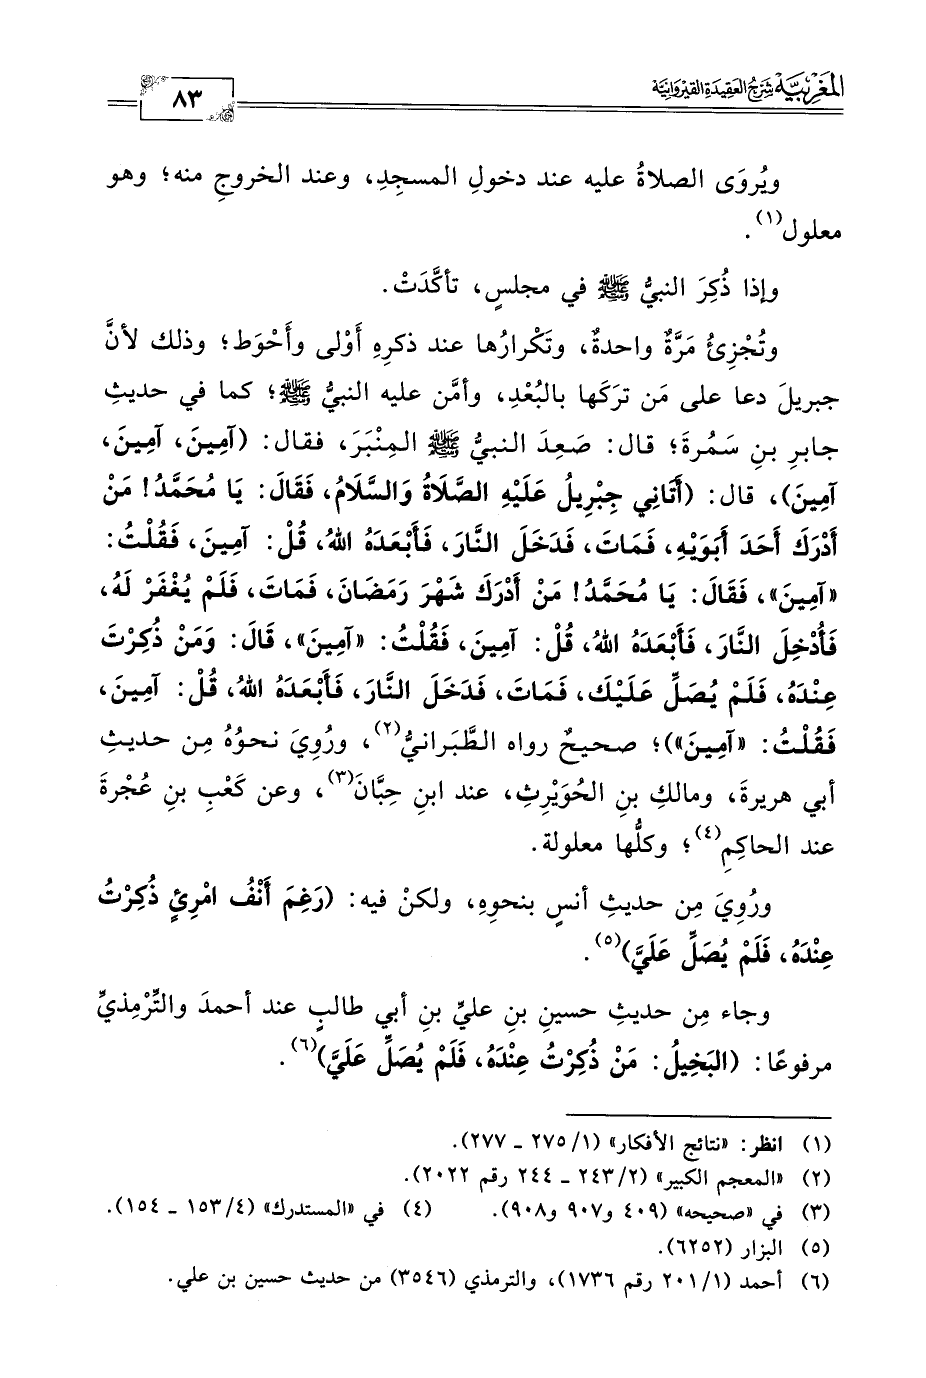 المَغْرِبِيَّة شَرْحُ العَقِيدَةِ القَيْرَوَانِيَّة
٨٣
ويُروَى الصلاةُ عليه عند دخولِ المسجدِ، وعند الخروجِ منه؛ وهو
معلول(١).
وإذا ذُكِرَ النبيُّ ﷺ في مجلسٍ، تأكَّدَتْ.
وتُجْزِئُ مَرَّةٌ واحدةٌ، وتَكْرارُها عند ذكرِهِ أَوْلى وأَحْوَط؛ وذلك لأنَّ
جبريلَ دعا على مَن ترَكَها بالبُعْدِ، وأمَّن عليه النبيُّ ﷺ؛ كما في حديثِ
جابرِ بنِ سَمُرةَ؛ قال: صَعِدَ النبيُّ ﷺ المِنْبَرَ، فقال: (آمِينَ، آمِينَ،
آمِينَ)، قال: (أَتَانِي جِبْرِيلُ عَلَيْهِ الصَّلَاةُ وَالسَّلَامُ، فَقَالَ: يَا مُحَمَّدُ! مَنْ
أَدْرَكَ أَحَدَ أَبَوَيْهِ، فَمَاتَ، فَدَخَلَ النَّارَ، فَأَبْعَدَهُ اللهُ، قُلْ: آمِينَ، فَقُلْتُ:
«آمِينَ»، فَقَالَ: يَا مُحَمَّدُ! مَنْ أَدْرَكَ شَهْرَ رَمَضَانَ، فَمَاتَ، فَلَمْ يُغْفَرْ لَهُ،
فَأُدْخِلَ النَّارَ، فَأَبْعَدَهُ اللهُ، قُلْ: آمِينَ، فَقُلْتُ: «آمِينَ»، قَالَ: وَمَنْ ذُكِرْتَ
عِنْدَهُ، فَلَمْ يُصَلِّ عَلَيْكَ، فَمَاتَ، فَدَخَلَ النَّارَ، فَأَبْعَدَهُ اللهُ، قُلْ: آمِينَ،
فَقُلْتُ: «آمِينَ»)؛ صحيحٌ رواه الطَّبَرانيُّ(٢)، ورُوِيَ نحوُهُ مِن حديثِ
أبي هريرةَ، ومالكِ بنِ الحُوَيْرِثِ، عند ابنِ حِبَّانَ(٣)، وعن كَعْبِ بنِ عُجْرةَ
عند الحاكِمِ(٤)؛ وكلُّها معلولة.
ورُوِيَ مِن حديثِ أنسٍ بنحوِهِ، ولكنْ فيه: (رَغِمَ أَنْفُ امْرِئٍ ذُكِرْتُ
عِنْدَهُ، فَلَمْ يُصَلِّ عَلَيَّ)(٥).
وجاء مِن حديثِ حسينِ بنِ عليِّ بنِ أبي طالبٍ عند أحمدَ والتِّرْمِذيِّ
مرفوعًا: (البَخِيلُ: مَنْ ذُكِرْتُ عِنْدَهُ، فَلَمْ يُصَلِّ عَلَيَّ)(٦).
(١) انظر: «نتائج الأفكار» (١/ ٢٧٥ ـ ٢٧٧).
(٢) «المعجم الكبير» (٢/ ٢٤٣ ـ ٢٤٤ رقم ٢٠٢٢).
(٣) في «صحيحه» (٤٠٩ و٩٠٧ و٩٠٨). (٤) في «المستدرك» (٤/ ١٥٣ ـ ١٥٤).
(٥) البزار (٦٢٥٢).
(٦) أحمد (١/ ٢٠١ رقم ١٧٣٦)، والترمذي (٣٥٤٦) من حديث حسين بن علي.